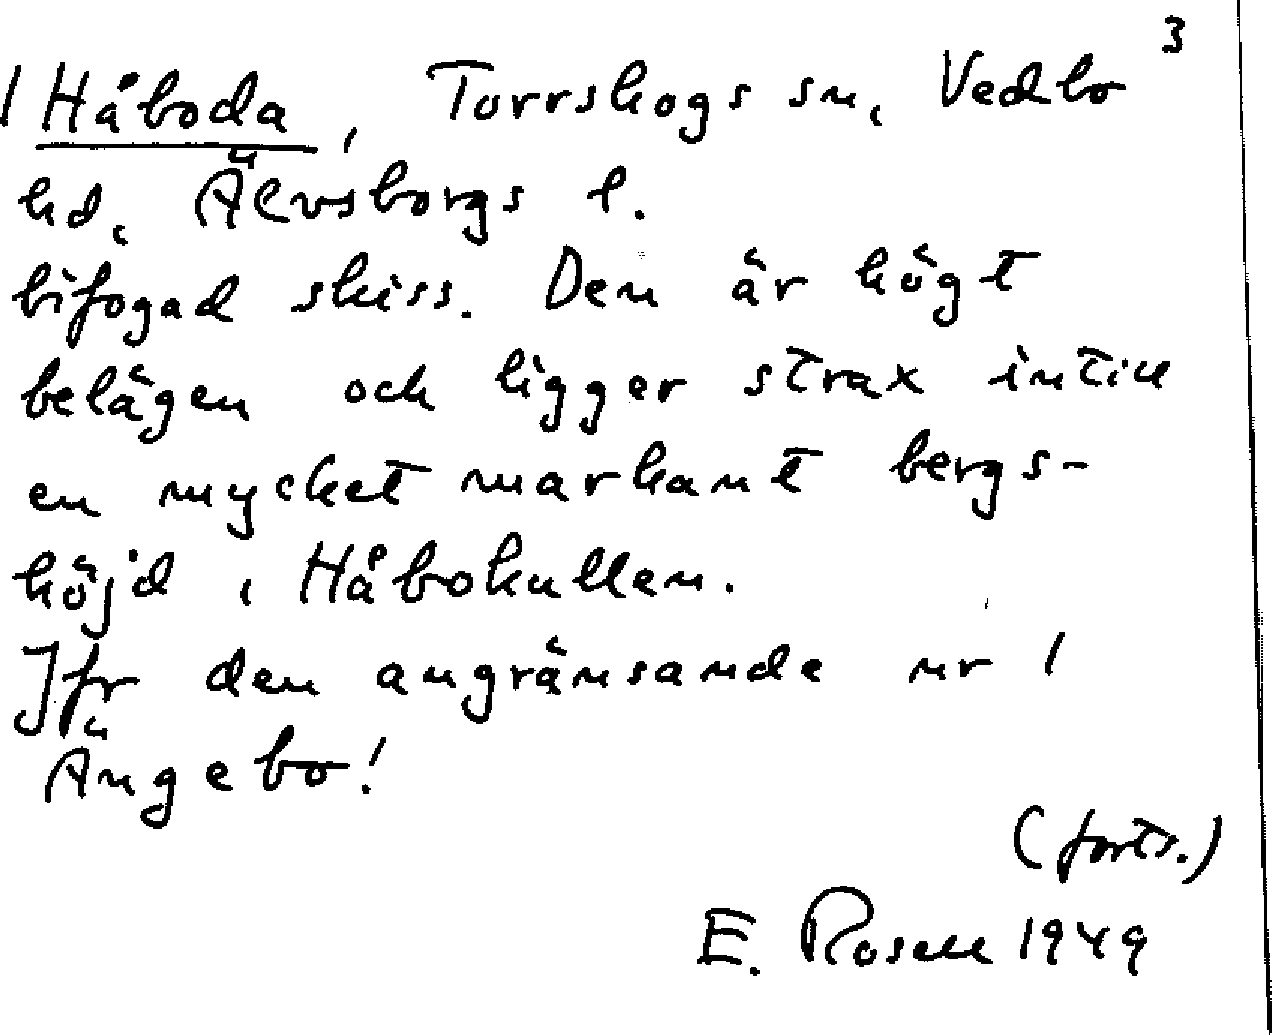 3
1 Håboda, Torrskogs sn, Vedbo
hd, Älvsborgs l.
bifogad skiss. Den är högt
belägen och ligger strax intill
en mycket markant bergs-
höjd, Håbokullen.
Jfr den angränsande nr 1
Ängebo!
(forts.)
E. Rosell 1949